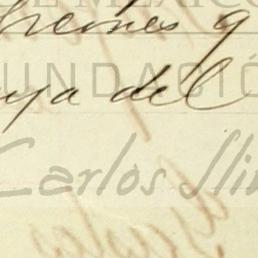 DE MÉXICO
hremes q
FUNDACIÓ
ya del
Carlos Slim